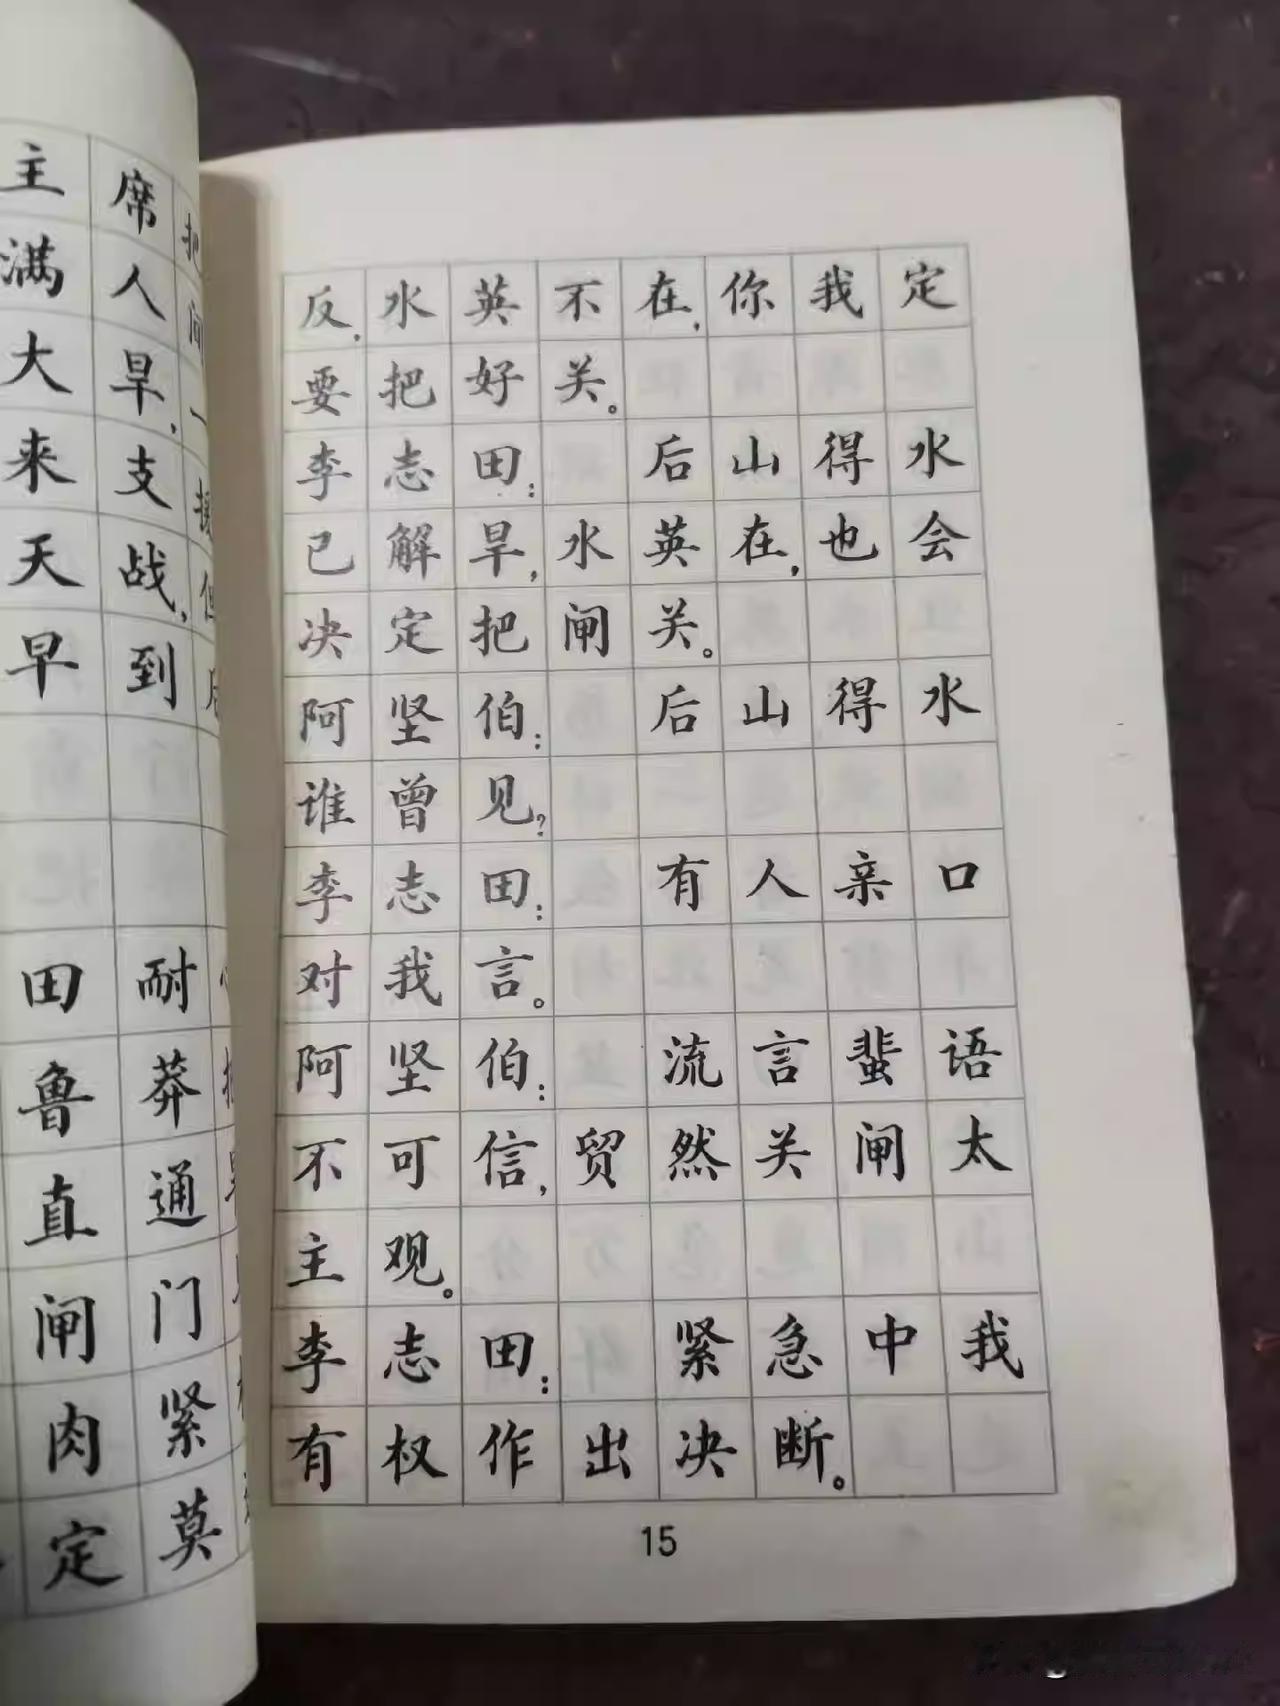 主席
满人
大旱，
来支
天战，
早到
田耐
鲁莽
直通
闸门
肉紧
定莫
反，水英不在，你我定
要把好关。
李志田：后山得水
已解旱，水英在，也会
决定把闸关。
阿坚伯：后山得水
谁曾见？
李志田：有人亲口
对我言。
阿坚伯：流言蜚语
不可信，贸然关闸太
主观。
李志田：紧急中我
有权作出决断。
15